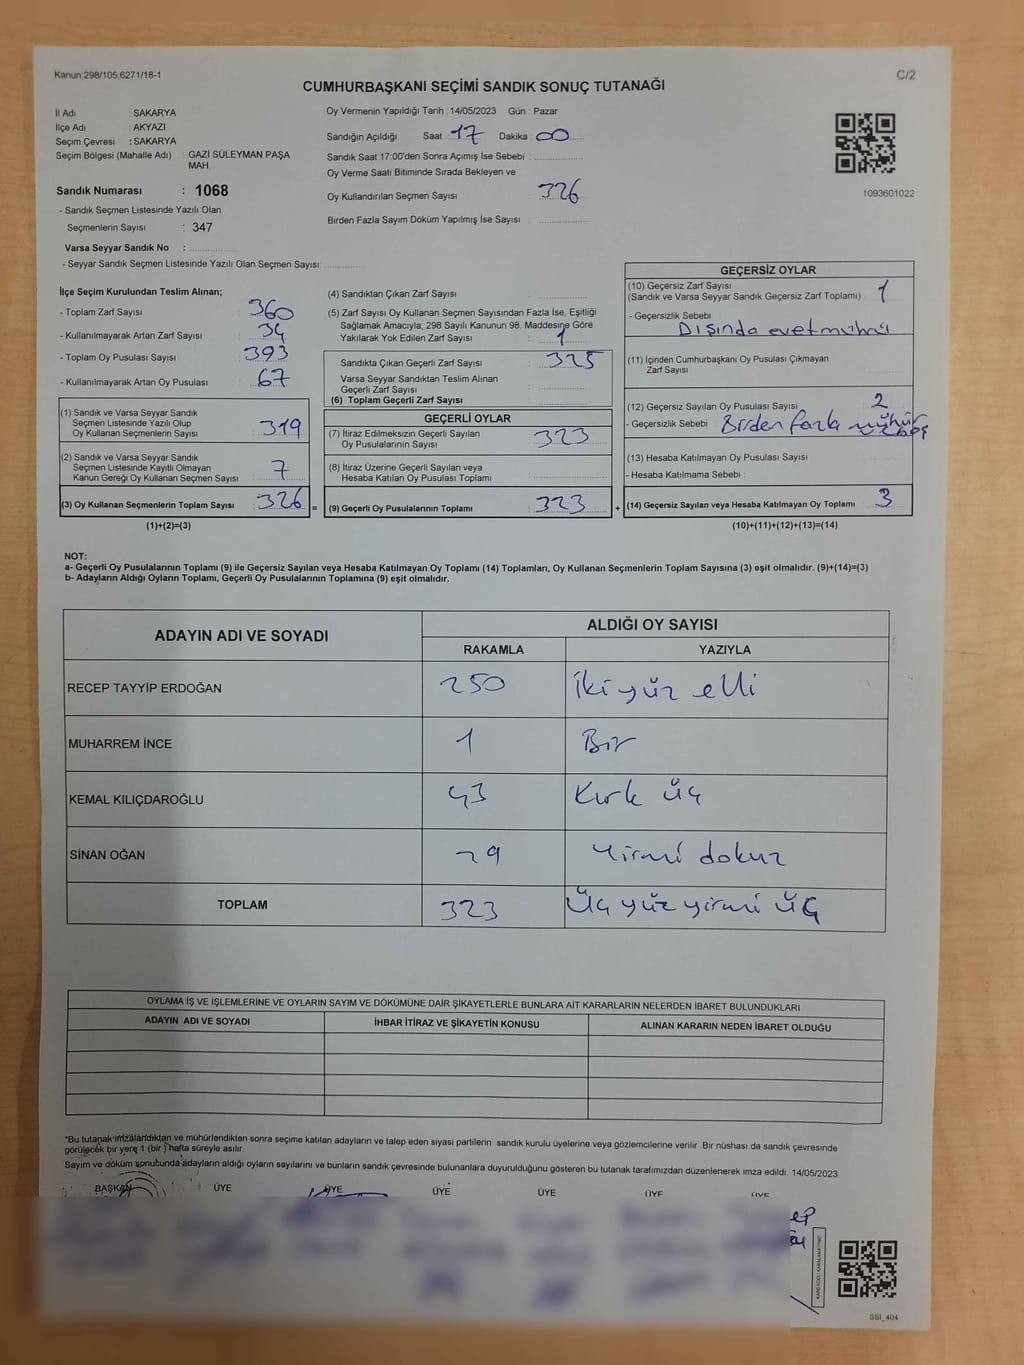 Kanun:298/105;6271/18-1
C/2
CUMHURBAŞKANI SEÇİMİ SANDIK SONUÇ TUTANAĞI
İl Adı : SAKARYA
İlçe Adı : AKYAZI
Seçim Çevresi : SAKARYA
Seçim Bölgesi (Mahalle Adı) : GAZİ SÜLEYMAN PAŞA
MAH.
Sandık Numarası : 1068
- Sandık Seçmen Listesinde Yazılı Olan
Seçmenlerin Sayısı : 347
Varsa Seyyar Sandık No :
- Seyyar Sandık Seçmen Listesinde Yazılı Olan Seçmen Sayısı:
Oy Vermenin Yapıldığı Tarih : 14/05/2023 Gün : Pazar
Sandığın Açıldığı Saat : 17 Dakika : 00
Sandık Saat 17:00'den Sonra Açımış İse Sebebi :
Oy Verme Saati Bitiminde Sırada Bekleyen ve
Oy Kullandırılan Seçmen Sayısı : 326
Birden Fazla Sayım Döküm Yapılmış İse Sayısı :
1093601022
İlçe Seçim Kurulundan Teslim Alınan;
- Toplam Zarf Sayısı : 360
- Kullanılmayarak Artan Zarf Sayısı : 34
- Toplam Oy Pusulası Sayısı : 393
- Kullanılmayarak Artan Oy Pusulası : 67
(1) Sandık ve Varsa Seyyar Sandık
Seçmen Listesinde Yazılı Olup
Oy Kullanan Seçmenlerin Sayısı : 319
(2) Sandık ve Varsa Seyyar Sandık
Seçmen Listesinde Kayıtlı Olmayan
Kanun Gereği Oy Kullanan Seçmen Sayısı : 7
(3) Oy Kullanan Seçmenlerin Toplam Sayısı : 326 =
(1)+(2)=(3)
(4) Sandıktan Çıkan Zarf Sayısı :
(5) Zarf Sayısı Oy Kullanan Seçmen Sayısından Fazla İse, Eşitliği
Sağlamak Amacıyla; 298 Sayılı Kanunun 98. Maddesine Göre
Yakılarak Yok Edilen Zarf Sayısı : 1
Sandıkta Çıkan Geçerli Zarf Sayısı : 325
Varsa Seyyar Sandıktan Teslim Alınan
Geçerli Zarf Sayısı :
(6) Toplam Geçerli Zarf Sayısı :
GEÇERLİ OYLAR
(7) İtiraz Edilmeksizin Geçerli Sayılan
Oy Pusulalarının Sayısı : 323
(8) İtiraz Üzerine Geçerli Sayılan veya
Hesaba Katılan Oy Pusulası Toplamı :
(9) Geçerli Oy Pusulalarının Toplamı : 323 +
GEÇERSİZ OYLAR
(10) Geçersiz Zarf Sayısı
(Sandık ve Varsa Seyyar Sandık Geçersiz Zarf Toplamı) : 1
- Geçersizlik Sebebi :
Dışında evet mührü
(11) İçinden Cumhurbaşkanı Oy Pusulası Çıkmayan
Zarf Sayısı :
(12) Geçersiz Sayılan Oy Pusulası Sayısı : 2
- Geçersizlik Sebebi : Birden fazla mühür
(13) Hesaba Katılmayan Oy Pusulası Sayısı :
- Hesaba Katılmama Sebebi :
(14) Geçersiz Sayılan veya Hesaba Katılmayan Oy Toplamı : 3
(10)+(11)+(12)+(13)=(14)
NOT:
a- Geçerli Oy Pusulalarının Toplamı (9) ile Geçersiz Sayılan veya Hesaba Katılmayan Oy Toplamı (14) Toplamları, Oy Kullanan Seçmenlerin Toplam Sayısına (3) eşit olmalıdır. (9)+(14)=(3)
b- Adayların Aldığı Oyların Toplamı, Geçerli Oy Pusulalarının Toplamına (9) eşit olmalıdır.
ADAYIN ADI VE SOYADI
ALDIĞI OY SAYISI
RAKAMLA YAZIYLA
RECEP TAYYİP ERDOĞAN 250 İki yüz elli
MUHARREM İNCE 1 Bir
KEMAL KILIÇDAROĞLU 43 Kırk üç
SİNAN OĞAN 29 Yirmi dokuz
TOPLAM 323 Üç yüz yirmi üç
OYLAMA İŞ VE İŞLEMLERİNE VE OYLARIN SAYIM VE DÖKÜMÜNE DAİR ŞİKAYETLERLE BUNLARA AİT KARARLARIN NELERDEN İBARET BULUNDUKLARI
ADAYIN ADI VE SOYADI İHBAR İTİRAZ VE ŞİKAYETİN KONUSU ALINAN KARARIN NEDEN İBARET OLDUĞU
*Bu tutanak imzalandıktan ve mühürlendikten sonra seçime katılan adayların ve talep eden siyasi partilerin sandık kurulu üyelerine veya gözlemcilerine verilir. Bir nüshası da sandık çevresinde
görülecek bir yere 1 (bir ) hafta süreyle asılır.
Sayım ve döküm sonucunda adayların aldığı oyların sayılarını ve bunların sandık çevresinde bulunanlara duyurulduğunu gösteren bu tutanak tarafımızdan düzenlenerek imza edildi. 14/05/2023
BAŞKAN ÜYE ÜYE ÜYE ÜYE ÜYE ÜYE
SSI_404